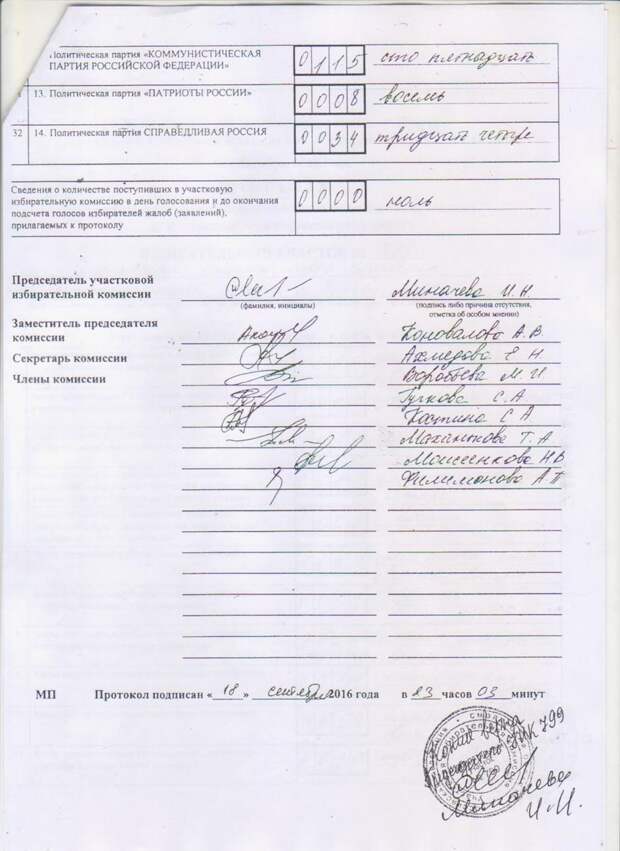 Политическая партия «КОММУНИСТИЧЕСКАЯ
ПАРТИЯ РОССИЙСКОЙ ФЕДЕРАЦИИ»
0 1 1 5
сто пятнадцать
13. Политическая партия «ПАТРИОТЫ РОССИИ»
0 0 0 8
восемь
32
14. Политическая партия СПРАВЕДЛИВАЯ РОССИЯ
0 0 3 4
тридцать четыре
Сведения о количестве поступивших в участковую
избирательную комиссию в день голосования и до окончания
подсчета голосов избирателей жалоб (заявлений),
прилагаемых к протоколу
0 0 0 0
ноль
Председатель участковой
избирательной комиссии
Миначева И.Н.
(фамилия, инициалы)
(подпись либо причина отсутствия,
отметка об особом мнении)
Заместитель председателя
комиссии
Коновалова А. В
Секретарь комиссии
Ахмедова Е Н.
Члены комиссии
Воробьева М. И
Гучкова С. А
Костина С А
Т. А
Моисеенкова Н В
Филимонова А П
МП
Протокол подписан « 18 » сентября 2016 года
в 23 часов 03 минут
Копия верна
председатель УИК 799
Миначева
И.Н.